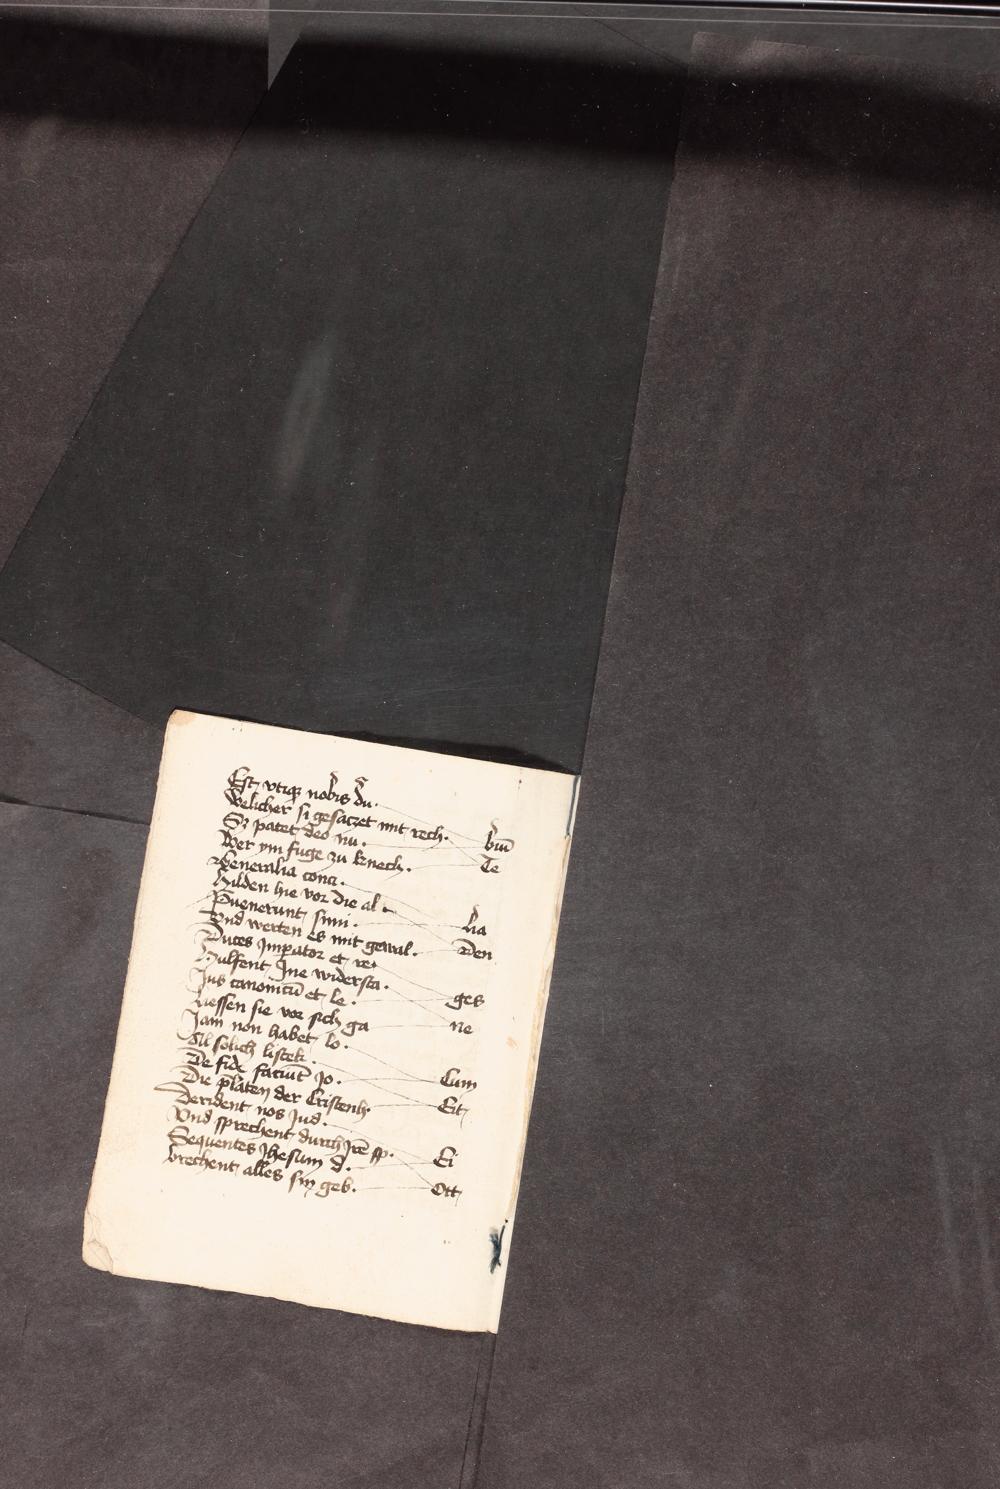 Est utrius nobis du.
Welicher si gesaczet mit rech.
biū
Sz patet deo nu.
Te
Der ym fuge zu knech.
Generalia conci.
Hilden hie vor die al.
lia
Puenerunt simi.
Den
Vnd werten es mit gewal.
Duces Imperator et re.
ges
Hulfent Ine widersta.
ne
Ius canonicū et le.
Liessen sie vor sich ga
Iam non habet lo.
Cum
Al solich listek.
Eit
De fide faciūt Jo.
Die platen der Cristenh.
Derident nos Jud.
Ei
Vnd sprechent durch Jrē sp.
Ott
Sequentes Jhesum d.
brechent alles sin geb.